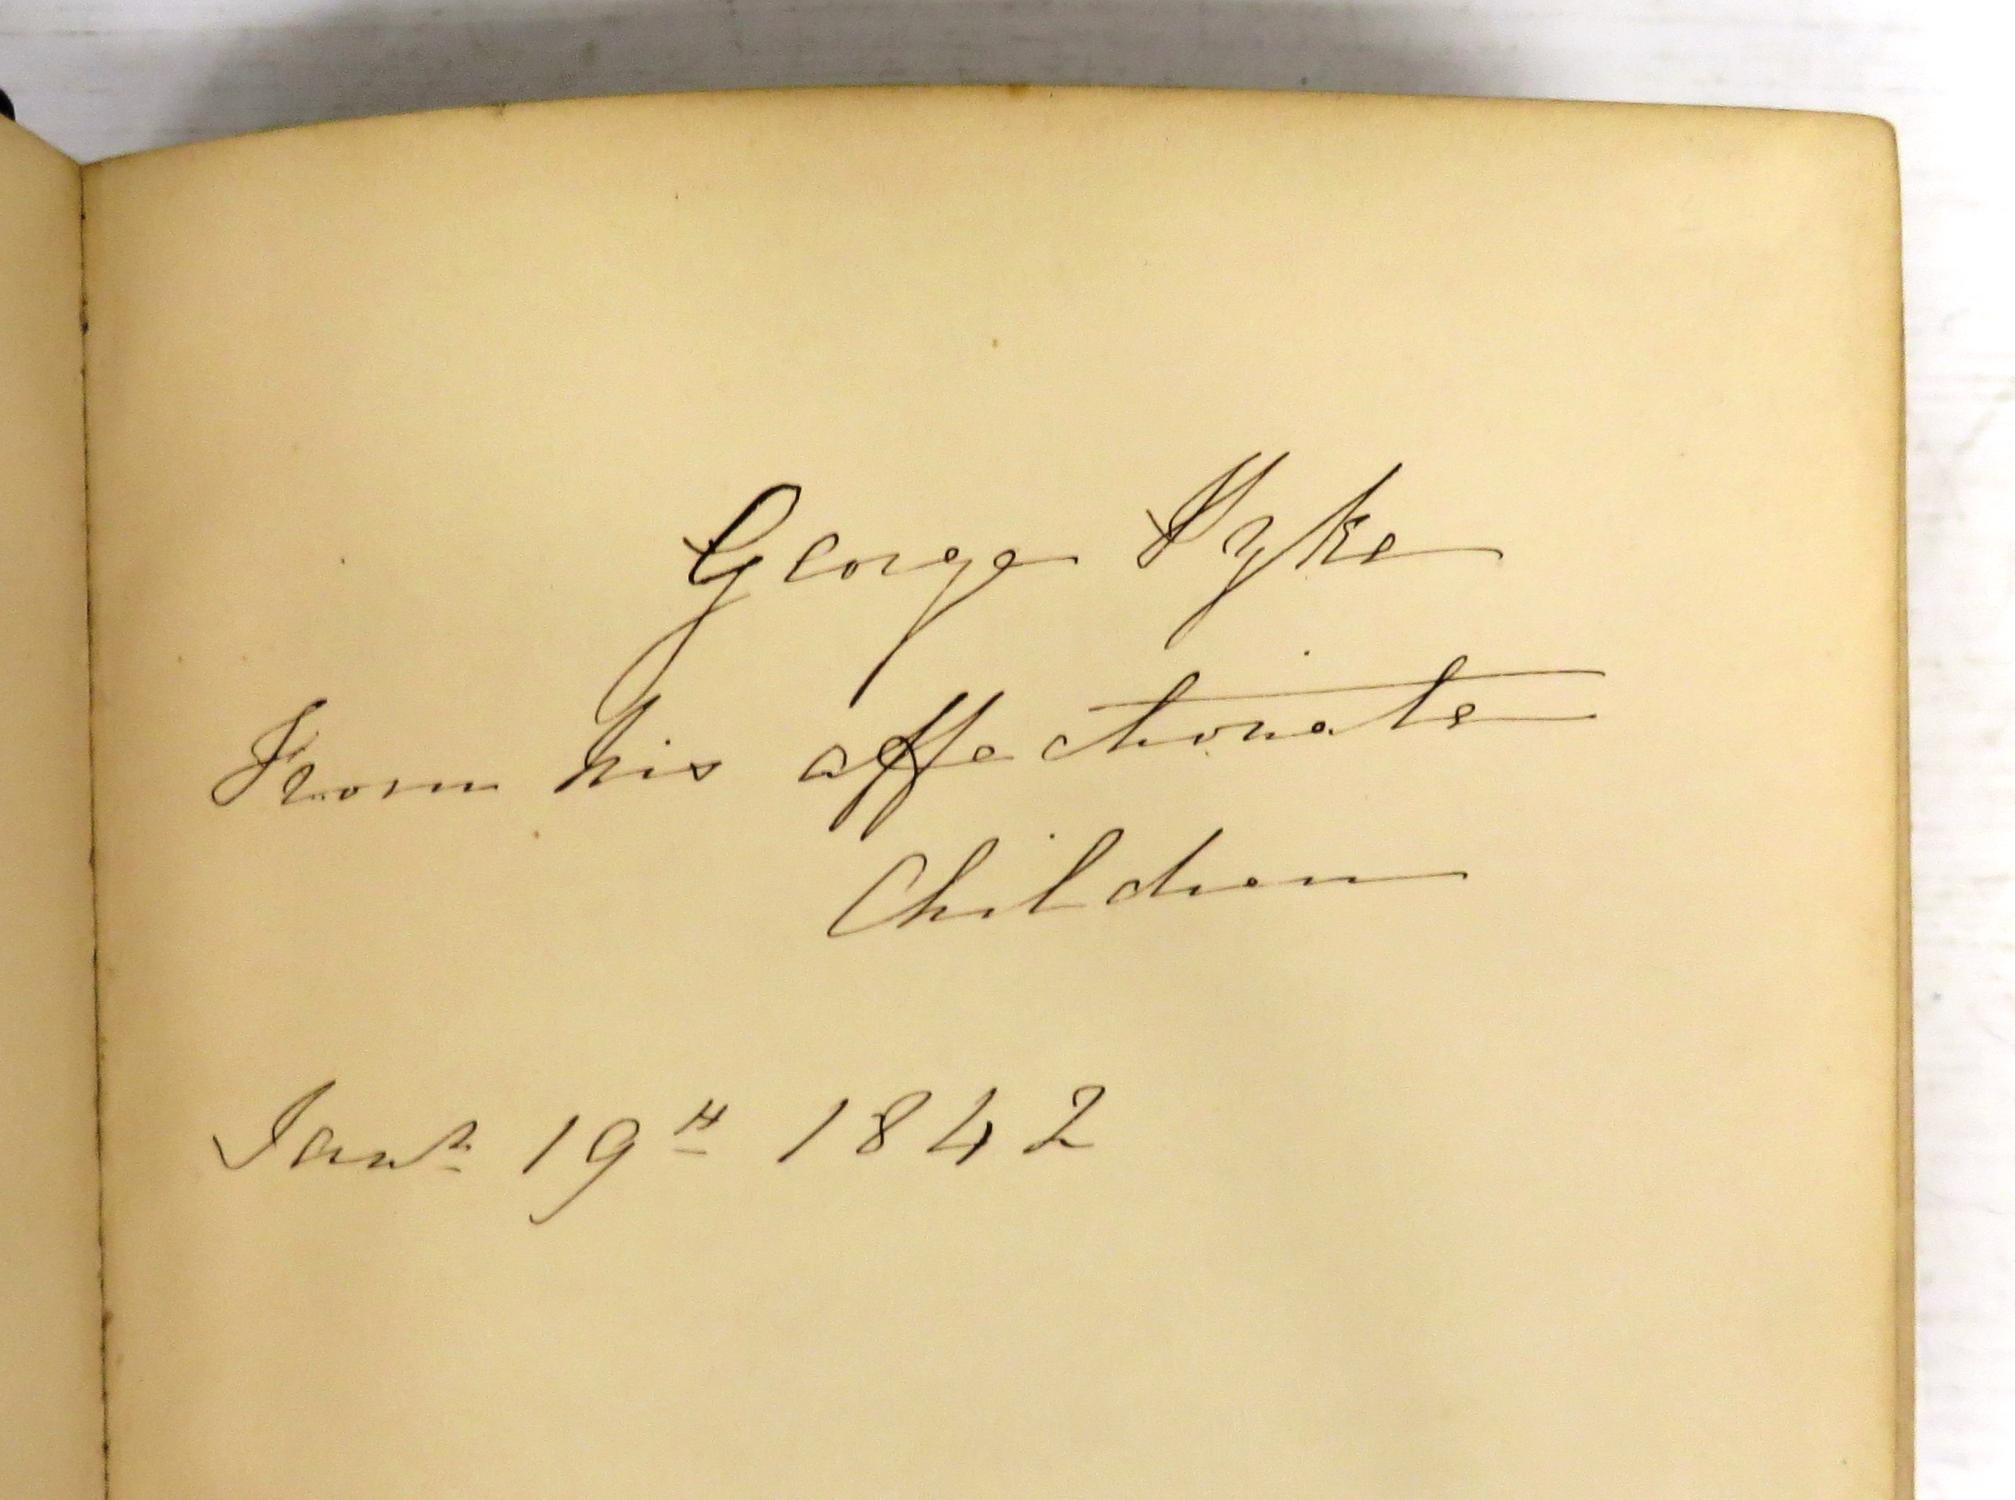 George Pyke
From his affectionate
Children
Jany 19th 1842